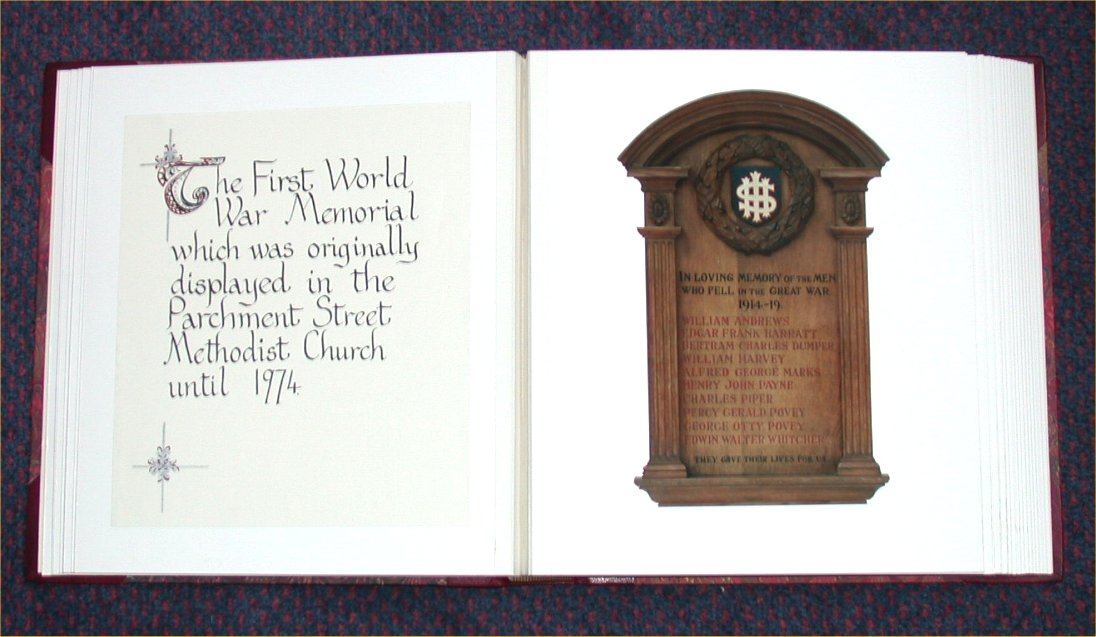 The First World
War Memorial
which was originally
displayed in the
Parchment Street
Methodist Church
until 1974.
IHS
IN LOVING MEMORY OF THE MEN
WHO FELL IN THE GREAT WAR
1914-19.
WILLIAM ANDREWS
EDGAR FRANK BARRATT
BERTRAM CHARLES DUMPER
WILLIAM HARVEY
ALFRED GEORGE MARKS
HENRY JOHN PAYNE
CHARLES PIPER
PERCY GERALD POVEY
GEORGE OTTY POVEY
EDWIN WALTER WHITCHER
THEY GAVE THEIR LIVES FOR US